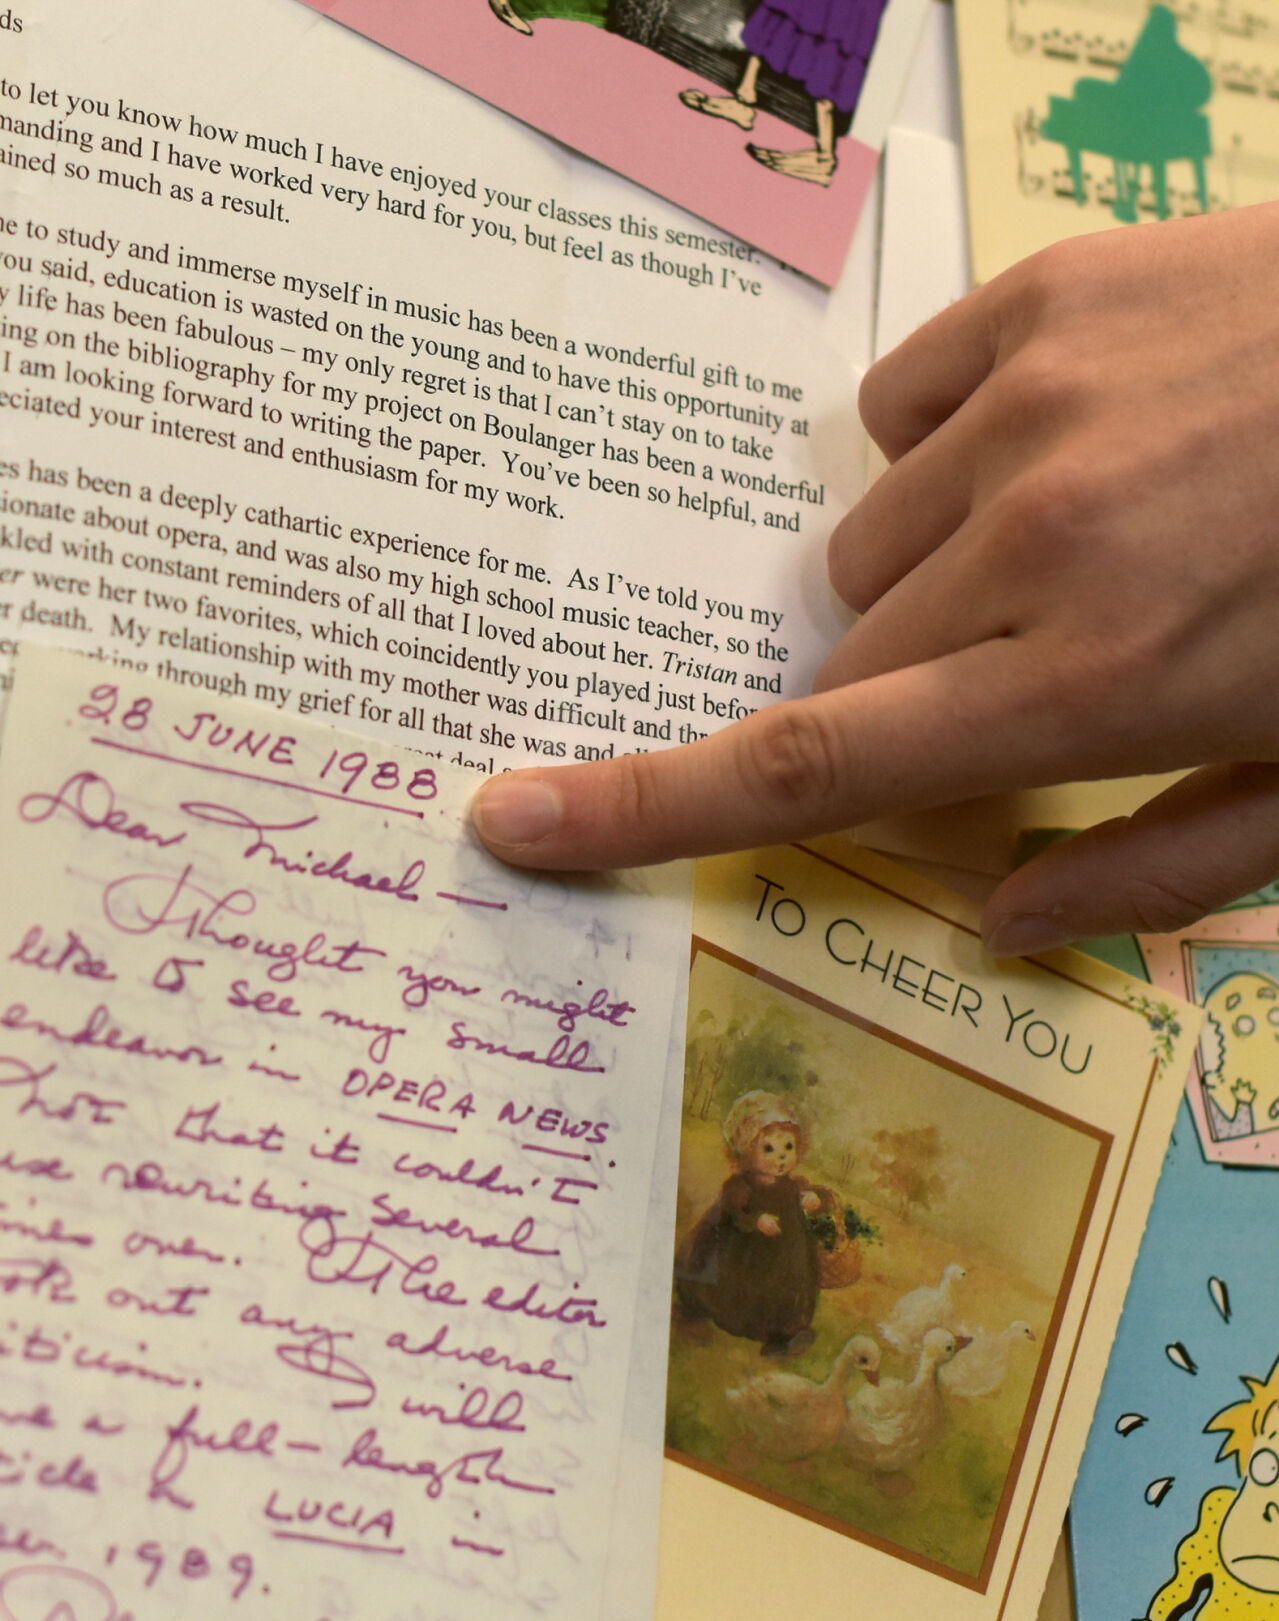 ds
to let you know how much I have enjoyed your classes this semester.
manding and I have worked very hard for you, but feel as though I've
ained so much as a result.
ne to study and immerse myself in music has been a wonderful gift to me
you said, education is wasted on the young and to have this opportunity at
y life has been fabulous – my only regret is that I can't stay on to take
ing on the bibliography for my project on Boulanger has been a wonderful
I am looking forward to writing the paper. You've been so helpful, and
eciated your interest and enthusiasm for my work.
es has been a deeply cathartic experience for me. As I've told you my
ionate about opera, and was also my high school music teacher, so the
kled with constant reminders of all that I loved about her. Tristan and
er were her two favorites, which coincidently you played just befor
r death. My relationship with my mother was difficult and thr
working through my grief for all that she was and
great deal
28 JUNE 1988
Dear Michael —
Thought you might
like to see my small
endeavor in OPERA NEWS.
Not that it couldn't
use rewriting several
times over. The editor
took out any adverse
iticism. I will
ve a full-length
ticle on LUCIA in
1989.
TO CHEER YOU